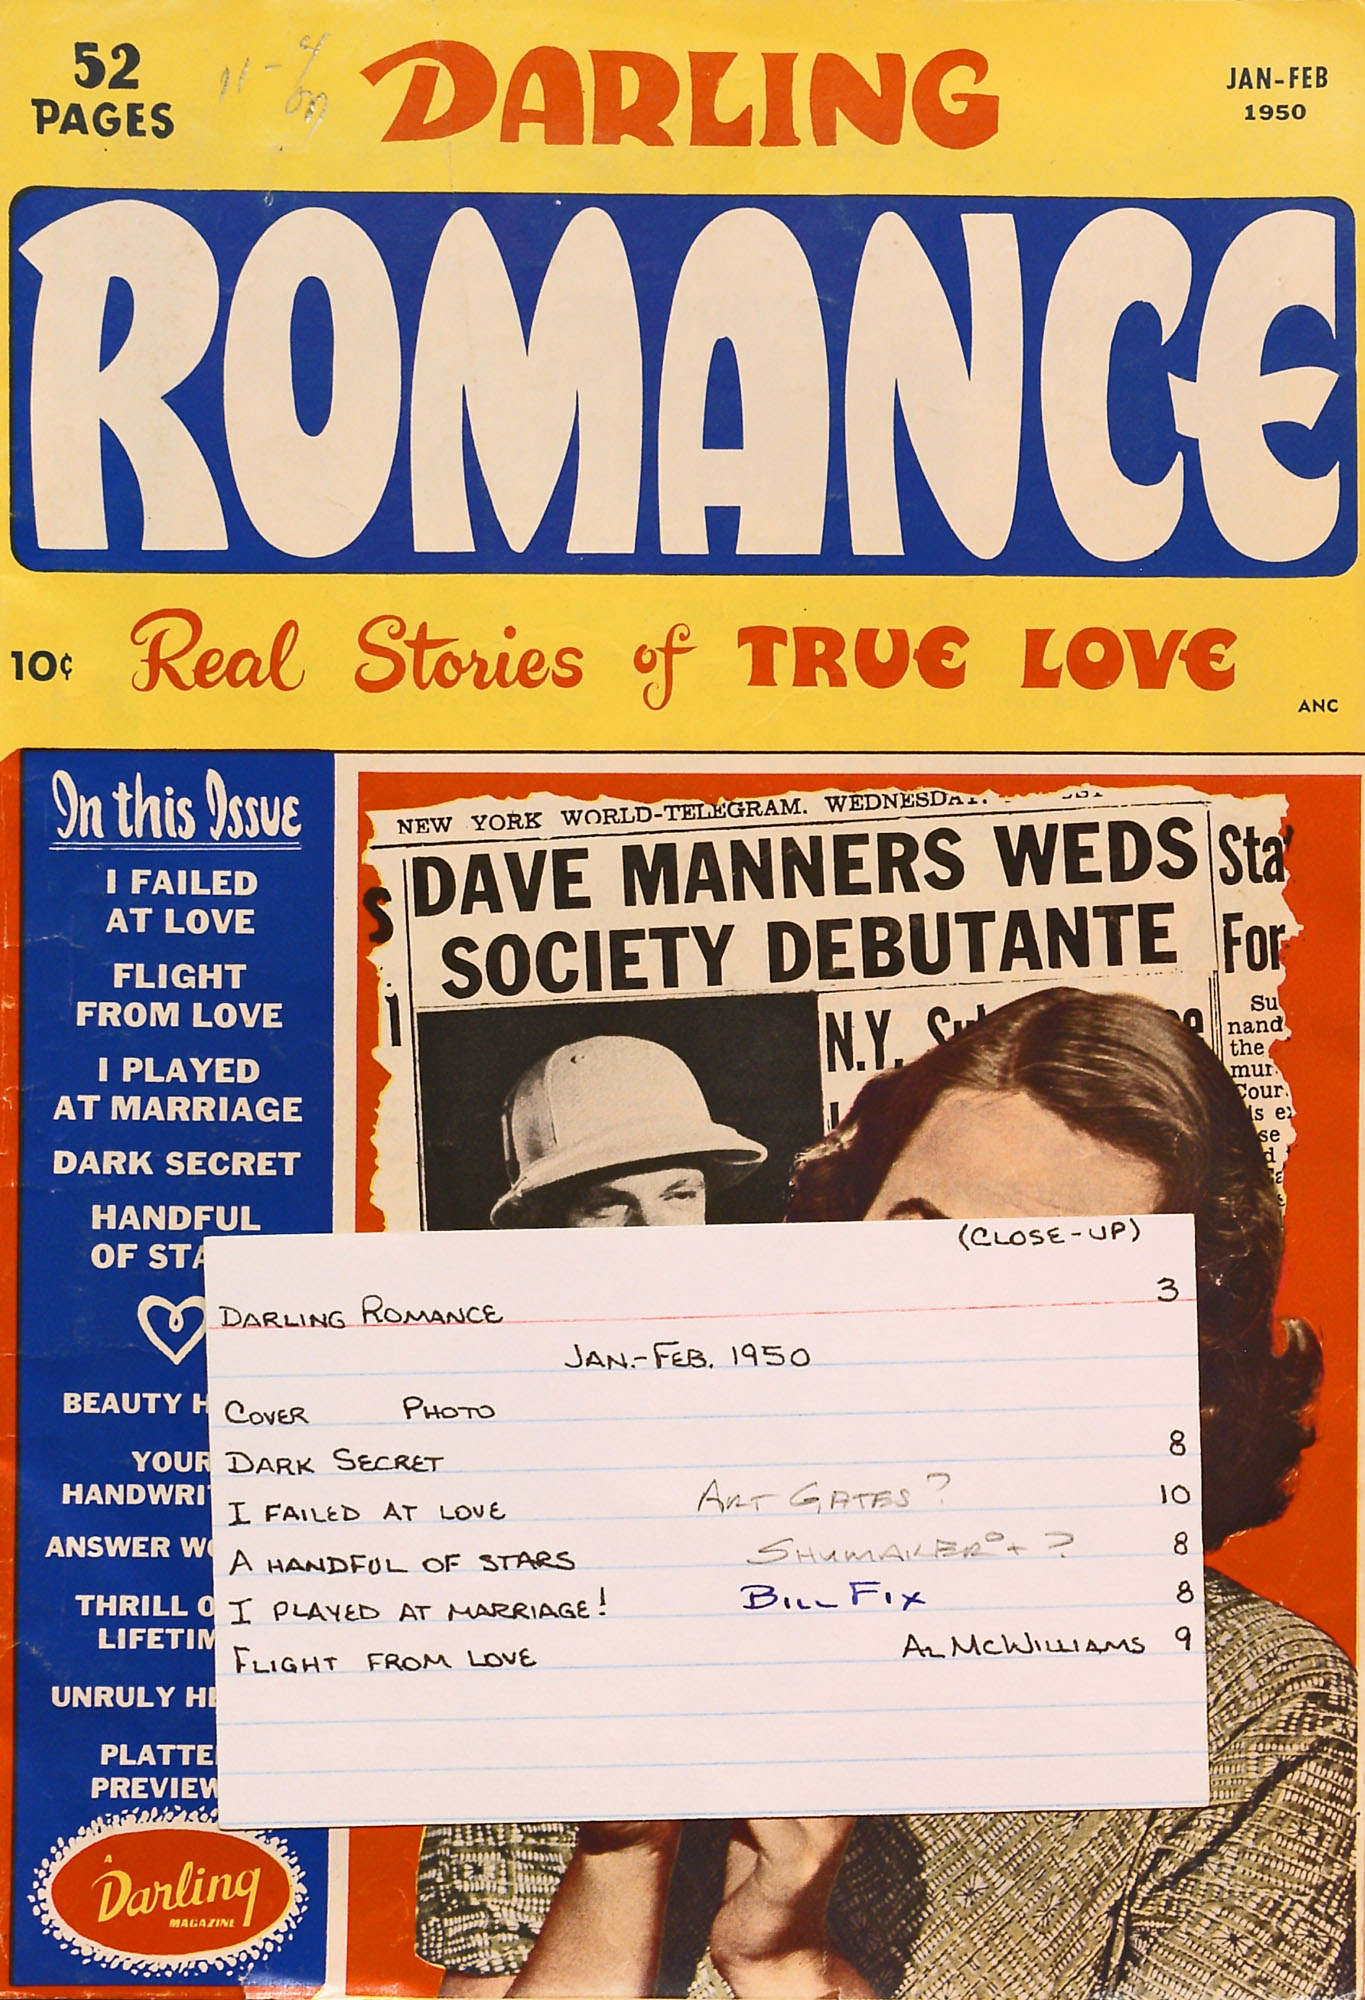 52
PAGES
11-4
DARLING
JAN-FEB
1950
ROMANCE
10¢
Real Stories of TRUE LOVE
ANC
In this Issue
I FAILED
AT LOVE
FLIGHT
FROM LOVE
I PLAYED
AT MARRIAGE
DARK SECRET
HANDFUL
OF STA
BEAUTY H
YOUR
HANDWRI
ANSWER W
THRILL O
LIFETIM
UNRULY H
PLATTE
PREVIEW
A
Darling
MAGAZINE
NEW YORK WORLD-TELEGRAM. WEDNESDA
DAVE MANNERS WEDS
SOCIETY DEBUTANTE
S
Sta
For
N.Y.
Su
nand
the
mur.
Cour.
s e
se
d
(CLOSE-UP)
3
DARLING ROMANCE
JAN.-FEB. 1950
COVER PHOTO
DARK SECRET 8
I FAILED AT LOVE ART GATES? 10
A HANDFUL OF STARS SHUMAKER + ? 8
I PLAYED AT MARRIAGE! BILL FIX 8
FLIGHT FROM LOVE AL MCWILLIAMS 9